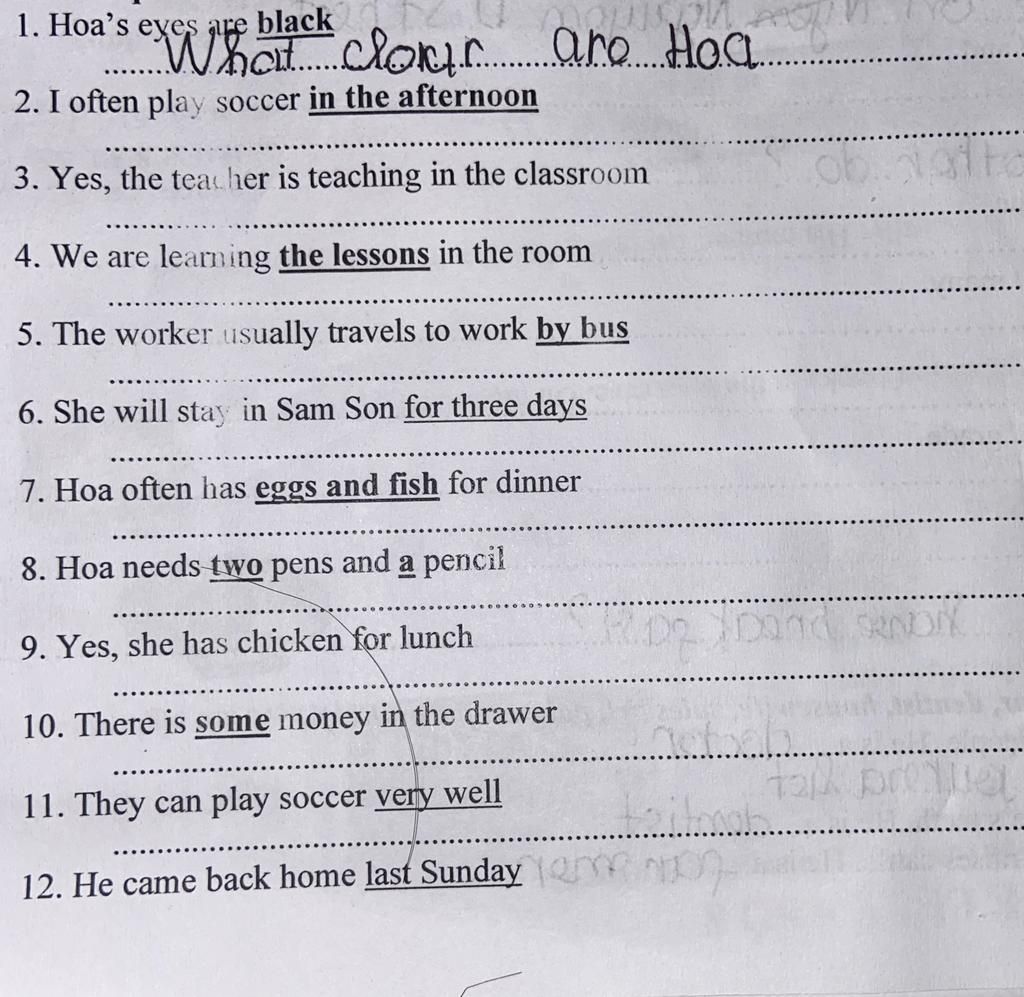 1. Hoa's eyes are black
What clour are Hoa
2. I often play soccer in the afternoon
3. Yes, the teacher is teaching in the classroom
4. We are learning the lessons in the room
5. The worker usually travels to work by bus
6. She will stay in Sam Son for three days
7. Hoa often has eggs and fish for dinner
8. Hoa needs two pens and a pencil
9. Yes, she has chicken for lunch
10. There is some money in the drawer
11. They can play soccer very well
12. He came back home last Sunday